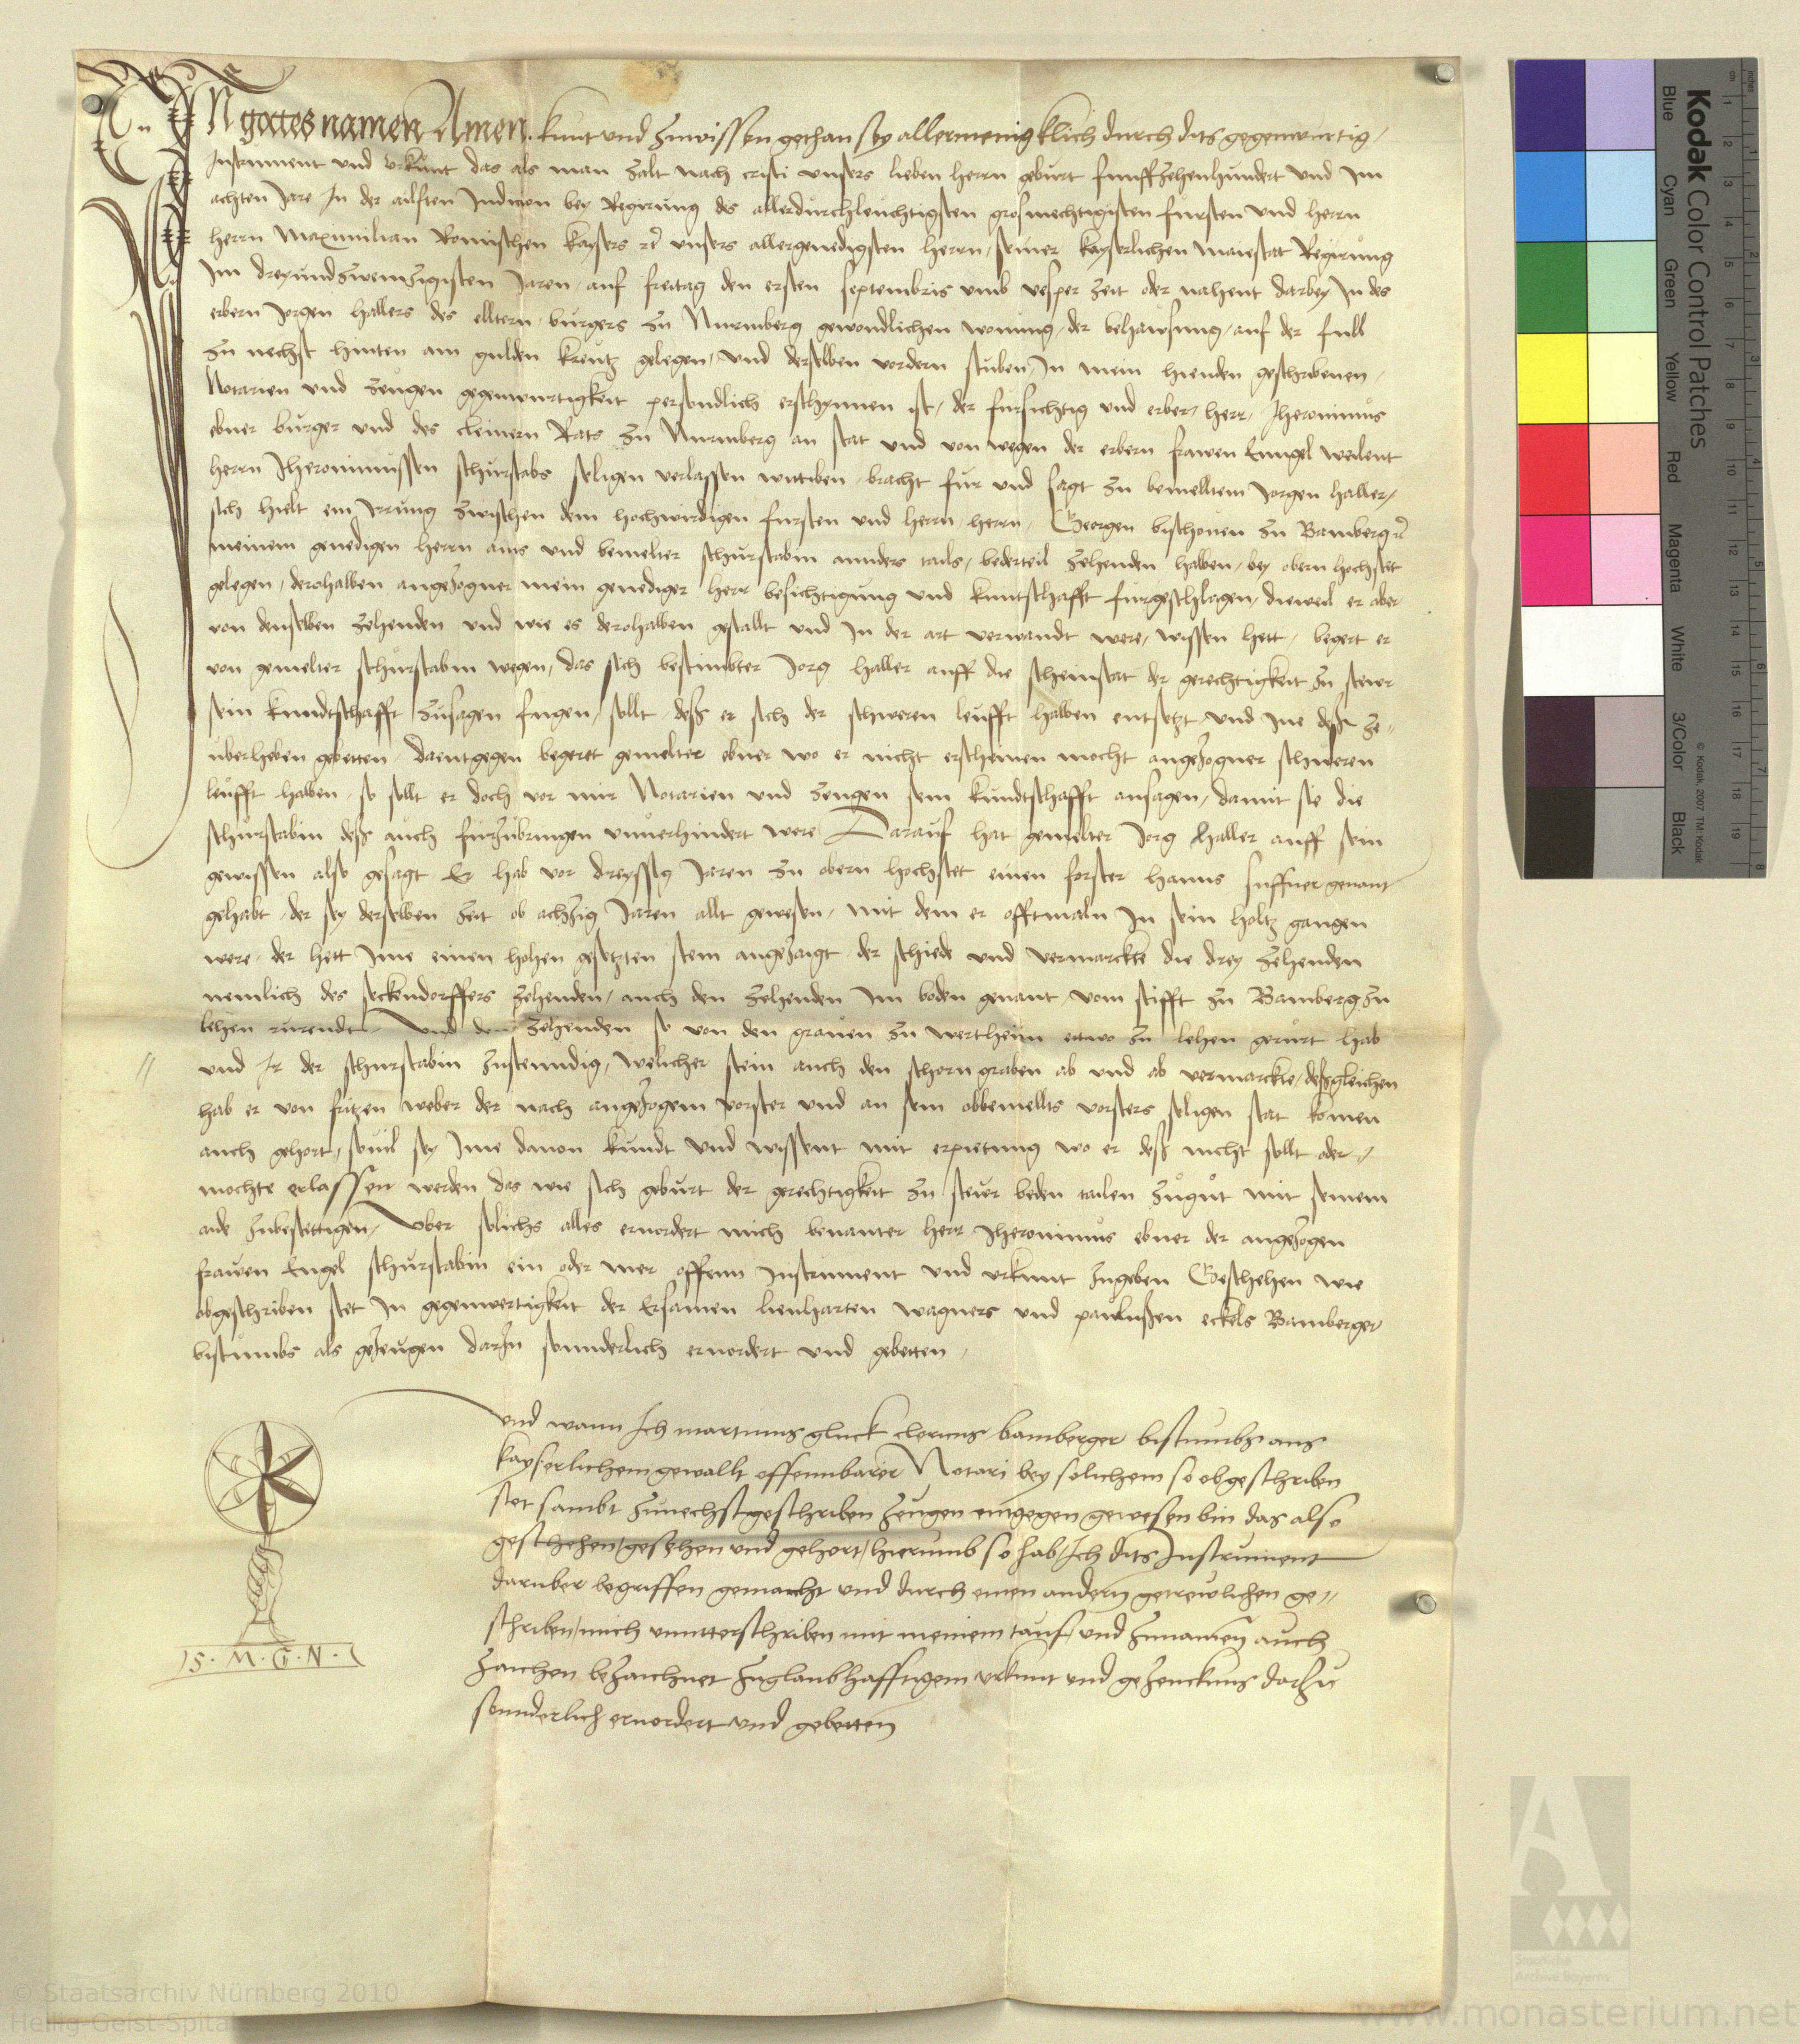 IN gotes namen Amen. kunt und zuwissen gethan sey allermenigklich durch dits gegenwurtig
Instrument und vrkunt das als man zalt nach cristi unsers lieben herrn geburt funffzehenhundert und Im
achten Jare In der ailften Indicion bey Regirung des allerdurchleuchtigsten grosmechtigisten fursten und herrn
herrn Maximilian Romischen kaysers rc unsers allergenedigsten herrn, seiner kayserlichen maiestat Regirung
Im dreyundzwenzigisten Jaren, auf freitag den ersten septembris umb vesper zeit oder nahent darbey In des
erbern Jorgen hallers des elltern, burgers zu Nurmberg gewondlichen wonung, der behawsung, auf der full
zu nechst hinten am gulden kreutz gelegen, und derselben vordern stuben, In mein hienden geschribenen,
Notarien und zeugen gegenwurtigkeit persondlich erschynnen ist, der fursichtig und erber, herr, Jheronimus
ebner burger und des cleinern Rats zu Nurmberg an stat und von wegen der erbern frawen Enngel weilent
herrn Jheronimussen schurstabs seligen verlassen wittiben, bracht fur und sagt zu bemelltem Jorgen haller,
sich hielt ein Irrung zwischen dem hochwirdigen fursten und herrn, herrn, Georgen bischouen zu Bamberg rc
meinem genedigen herrn ains und bemelter schurstabin annders tails, bederteil zehenden halben, bey obern hochstet
gelegen, derohalben angezogner mein genediger herr besichtigung und kuntschafft furgeschlagen, dieweil er aber
von denselben zehenden und wie es derohalben gestallt und In der art verwandt were, wissen hett, begert er
von gemelter schurstabin wegen, das sich bestimbter Jorg haller auff die scheinstat der gerechtigkeit zu stewr
sein kundtschafft zusagen fugen, sollt, deß er sich der schweren leufft halben entsetzt und Ine deß ze-
uberheben gebetten, daentgegen begeret gemelter ebner wo er nicht erscheinen mocht angezogner schweren
leufft halben, so sollt er doch vor mir Notarien und zeugen sein kundtschafft ansagen, damit sie die
schurstabin deß auch furzubringen unuerhindert were Darauf hat gemelter Jorg haller auff sein
gewissen also gesagt Er hab vor dreyssig Jaren zu obern hochstet einen forster hanns suffner genant
gehabt, der sey derselben zeit ob achzig Jaren allt gewesen, mit dem er offtmaln In sein holtz gangen
were, der hett Ime einen hohen gesetzten stein angezaigt der schiede und vermarckte die drey zehenden
nemlich des seckendorffers zehenden, auch den zehenden Im boden genant, vom stifft zu Bamberg zu
lehen rurendt und den zehenden so von den grauen zu wertheim ettwo zu lehen gerurt hab
und Ir der schurstabin zustenndig, welicher stein auch den schorn graben ab und ab vermarckte, deßgleichen
hab er von fritzen weber der nach angezogem vorster und an sein obbemellts vorsters seligen stat komen
auch gehort, souil sey Ime dauon kundt und wissent mit erpietung wo er deß nicht sollt oder
mochte erlassen werden das wie sich geburt der gerechtigkeit zu steur beden tailen zugut mit seinem
aide zubestettigen, Vber solichs alles eruordert mich benanter herr Jheronimus ebner der angezogen
frawen Engel schurstabin ein oder mer offenn Instrument und vrkunt zugeben Geschehen wie
obgeschriben stet In gegenwertigkeit der Ersamen lienharten wagners und paulussen eckels Bamberger
bistumbs als gezeugen darzu sonnderlich eruordert und gebetten,
und wann Ich martinus gluck clericus bamberger bistumbs aus
kayserlichem gewallt offennbarer Notari bey solichem so obgeschriben
stet sambt zunechstgeschriben zeugen entgegen gewesen bin das also
geschehen, gesehen und gehort, hierumb so hab, Ich dits Instrument
daruber begriffen gemacht und durch einen andern getrewlichen ge-
schriben, mich unnterschriben mit meinem tauf, und zunamen auch
zaichen bezaichnet zuglaubhafftigem vrkunt und gezeucknus darzu
sonnderlich eruordert und gebetten
15 . M . G . N .
Kodak Color Control Patches
Blue Cyan Green Yellow Red Magenta White 3/Color Black
© Kodak, 2007 TM: Kodak
© Staatsarchiv Nürnberg 2010
Heilig-Geist-Spital
www.monasterium.net